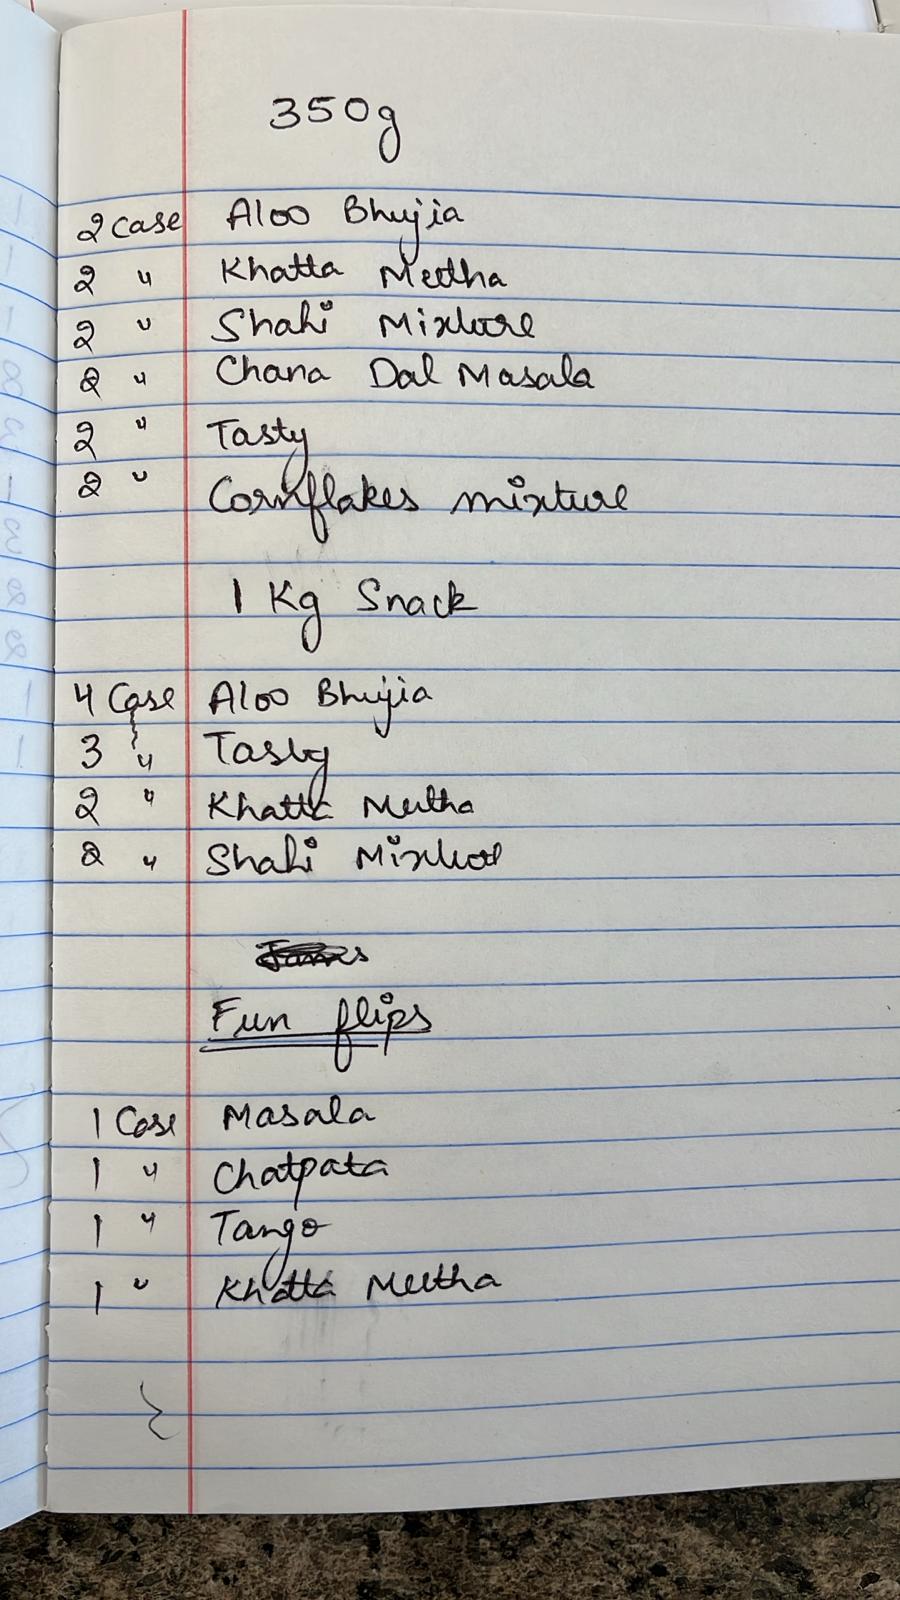 350g
2 Case Aloo Bhujia
2 " Khatta Meetha
2 " Shahi Mixture
2 " Chana Dal Masala
2 " Tasty
2 " Cornflakes mixture
1 Kg Snack
4 Case Aloo Bhujia
3 " Tasty
2 " Khatta Meetha
2 " Shahi Mixture
Fun flips
1 Case Masala
1 " Chatpata
1 " Tango
1 " Khatta Meetha